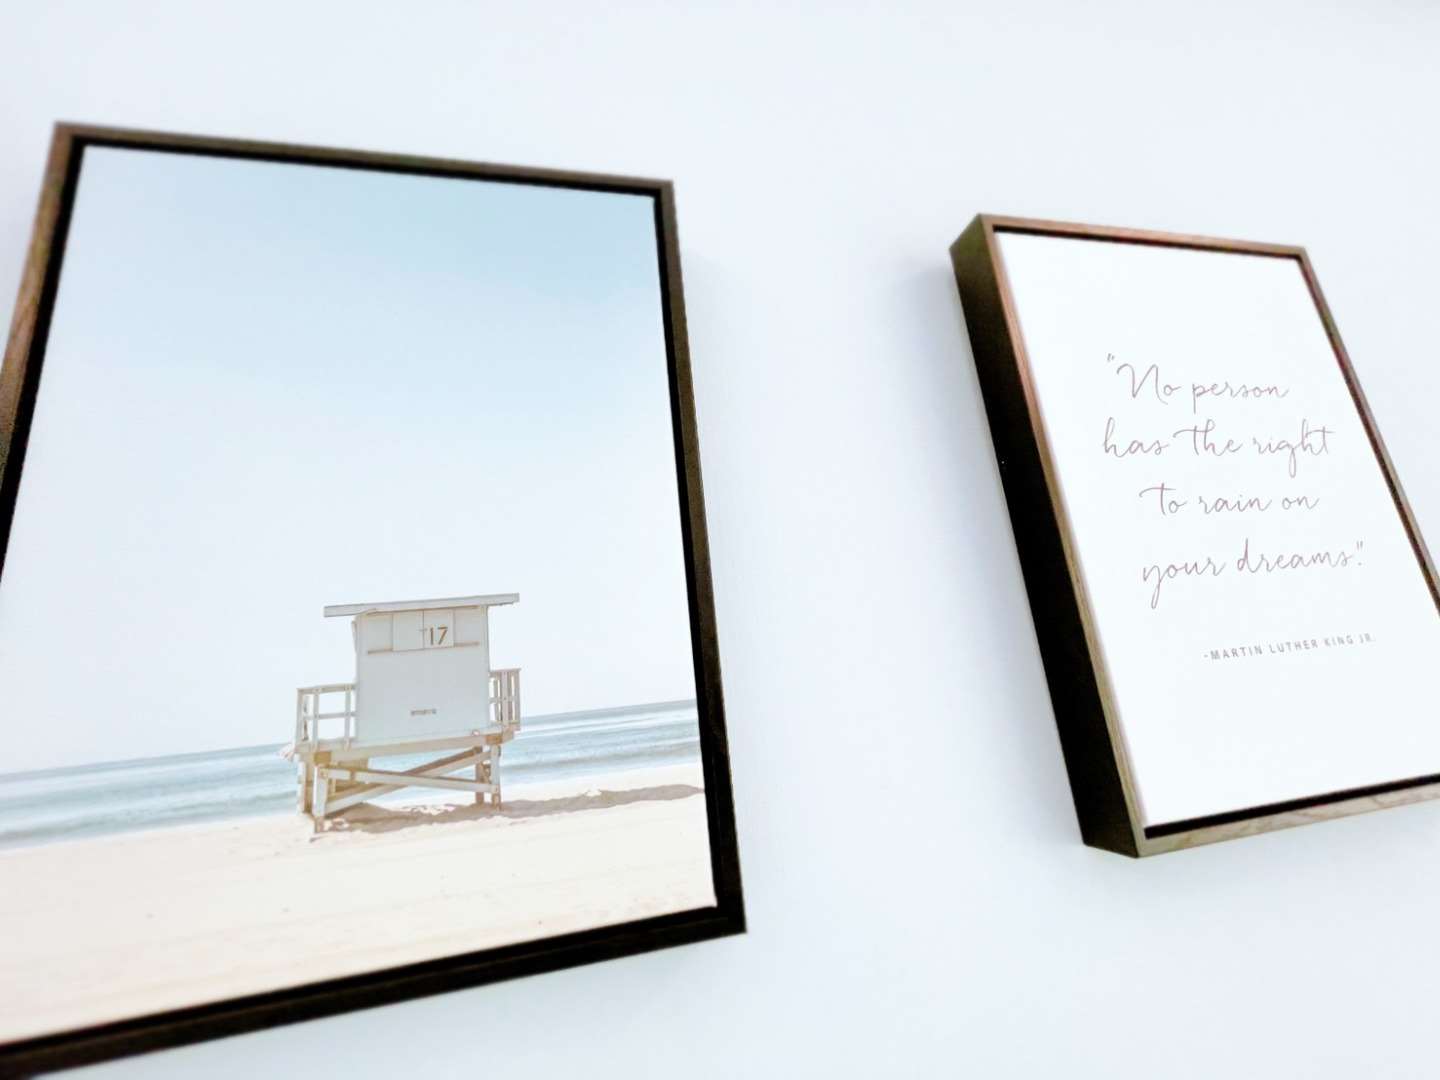 17
"No person
has the right
to rain on
your dreams."
-MARTIN LUTHER KING JR.